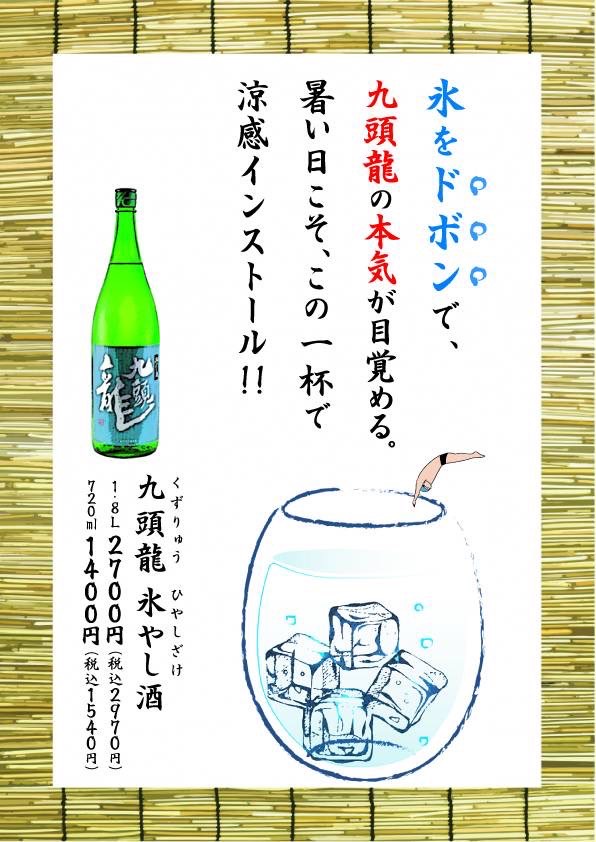 氷をドボンで、
九頭龍の本気が目覚める。
暑い日こそ、この一杯で
涼感インストール!!
九頭龍
くずりゅう ひやしざけ
九頭龍 氷やし酒
1.8L 2700円(税込2970円)
720ml 1400円(税込1540円)